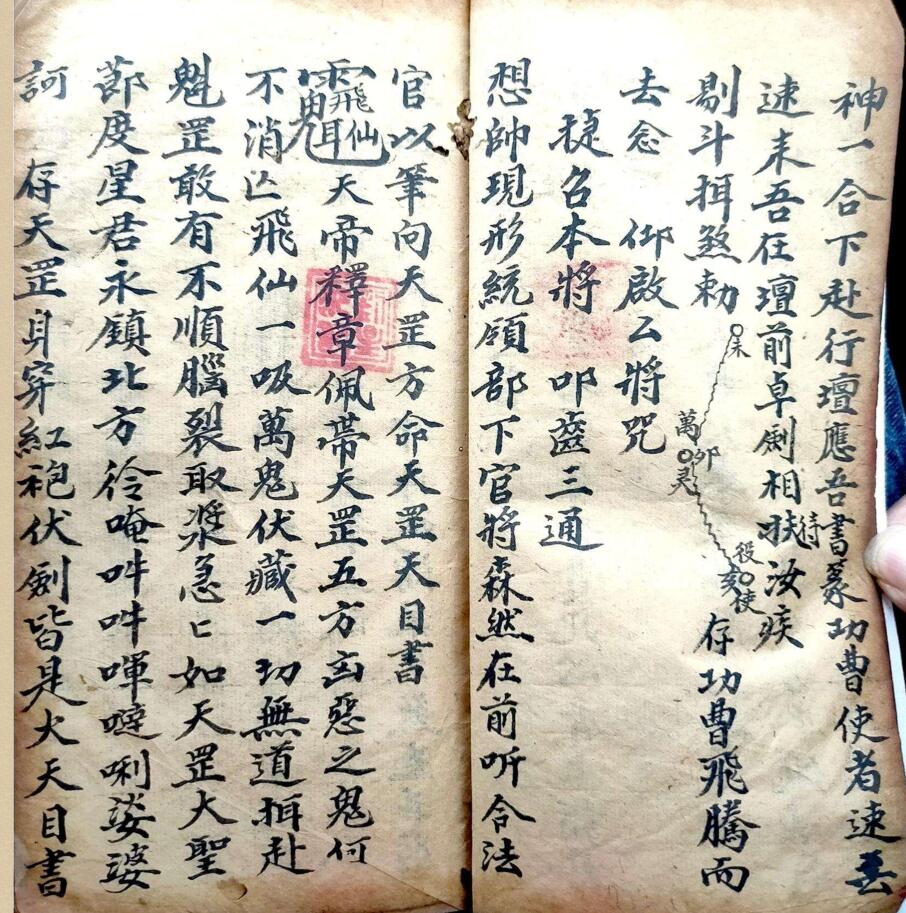 神一合下赴行壇應吾書篆功曹使者速
速来吾在壇前卓劍相扶待汝疾
剔斗揖煞勅
未
萬
卯
灵
役
亥
使
存功曹飛騰而
去念 仰啟厶将咒
召本將 叩齒三通
想帥現形統領部下官將森然在前听合法
官以筆向天罡方命天罡天目書
飛仙
天帝釋章佩帶天罡五方凶惡之鬼何
不消亡飛仙一吸萬鬼伏藏一切無道揖赴
魁罡敢有不順腦裂取漿急匕如天罡大聖
節度星君永鎮北方唵吽吽㖸噠唎娑婆
訶 存天罡身穿紅袍伏劍皆是火天目書